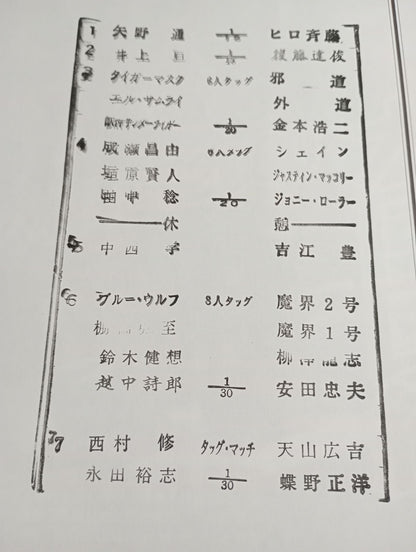 1 矢野通 1/15 ヒロ斉藤
2 井上亘 1/15 後藤達俊
3 タイガーマスク 6人タッグ 邪道
エル・サムライ 外道
1/20 金本浩二
4 成瀬昌由 6人タッグ シェイン
垣原賢人 ジャスティン・マッコリー
田中稔 1/20 ジョニー・ローラー
休憩
5 中西学 吉江豊
6 ブルー・ウルフ 8人タッグ 魔界2号
至 魔界1号
鈴木健想 柳澤龍志
越中詩郎 1/30 安田忠夫
7 西村修 タッグ・マッチ 天山広吉
永田裕志 1/30 蝶野正洋